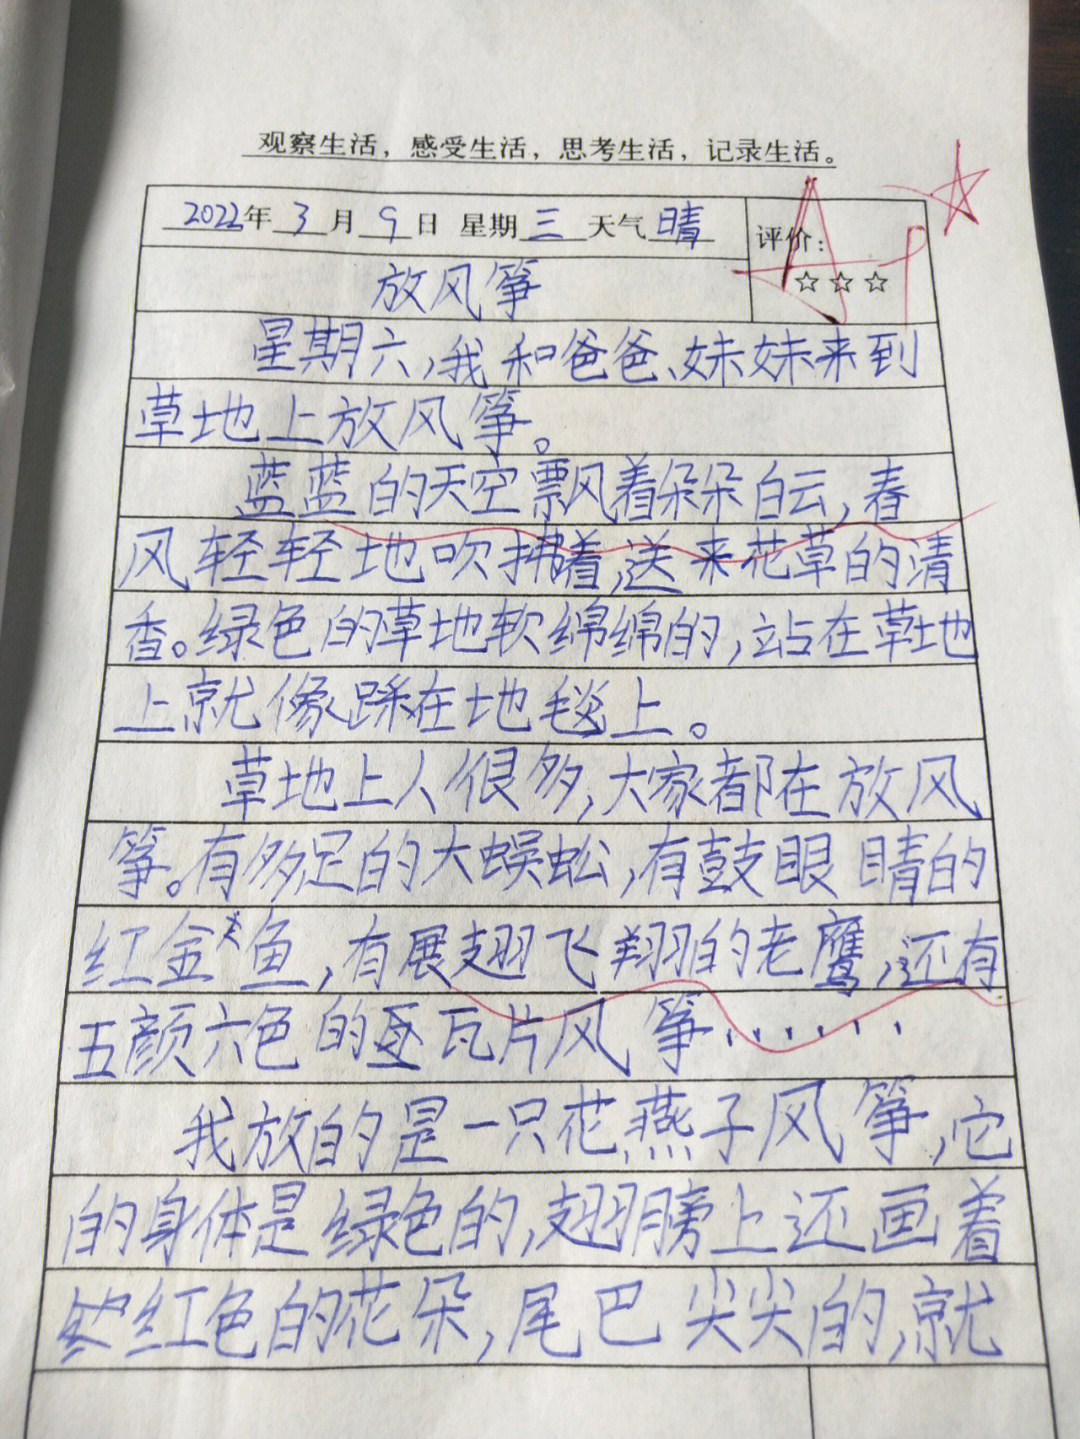 观察生活，感受生活，思考生活，记录生活。
2022年 3 月 9 日 星期 三 天气 晴
评价：
☆☆☆
放风筝
星期六，我和爸爸、妹妹来到
草地上放风筝。
蓝蓝的天空飘着朵朵白云，春
风轻轻地吹拂着，送来花草的清
香。绿色的草地软绵绵的，站在草地
上就像踩在地毯上。
草地上人很多，大家都在放风
筝。有多足的大蜈蚣，有鼓眼睛的
红金鱼，有展翅飞翔的老鹰，还有
五颜六色的瓦片风筝……
我放的是一只花燕子风筝，它
的身体是绿色的，翅膀上还画着
红色的花朵，尾巴尖尖的，就